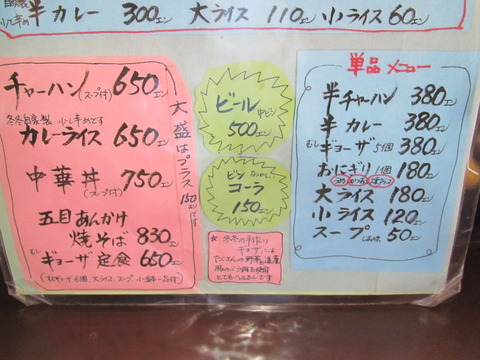 半カレー 300エン 大ライス 110エン 小ライス 60エン
チャーハン(スープ付) 650エン
冬冬自家製 少し辛めです
カレーライス 650エン
中華丼 750エン
(スープ付)
五目あんかけ
焼そば 830エン
むしギョーザ定食 650エン
大盛はプラス150エンです
ビール 中ビン
500エン
ビン
コーラ
150エン
*冬冬の手作り
ギョーザには
たくさんの野菜と道産
豚のバラ肉を使用
とてもヘルシーです
単品メニュー
半チャーハン 380エン
半カレー 380エン
むしギョーザ5個 380エン
おにぎり1個 180エン
大ライス 180エン
小ライス 120エン
スープ 50エン